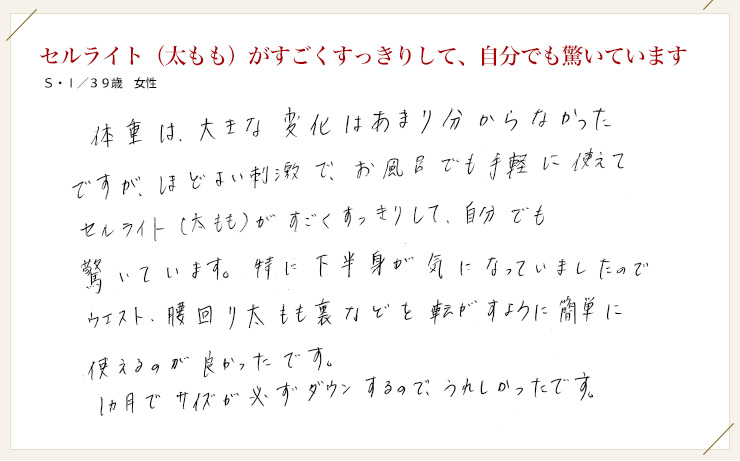 セルライト（太もも）がすごくすっきりして、自分でも驚いています
Ｓ・Ｉ／３９歳　女性
体重は、大きな変化はあまり分からなかった
ですが、ほどよい刺激で、お風呂でも手軽に使えて
セルライト(太もも)がすごくすっきりして、自分でも
驚いています。特に下半身が気になっていましたので
ウエスト、腰回り太もも裏などを転がすように簡単に
使えるのが良かったです。
1ヵ月でサイズが必ずダウンするので、うれしかったです。